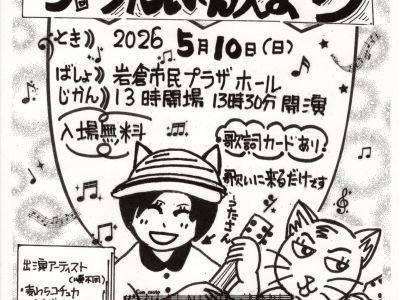 とき》 2026 5月10日(日)
ばしょ》岩倉市民プラザホール
じかん》13時開場 13時30分開演
入場無料
歌詞カードあり!
歌いに来るだけです
うたさん
出演アーティスト
(順不同)